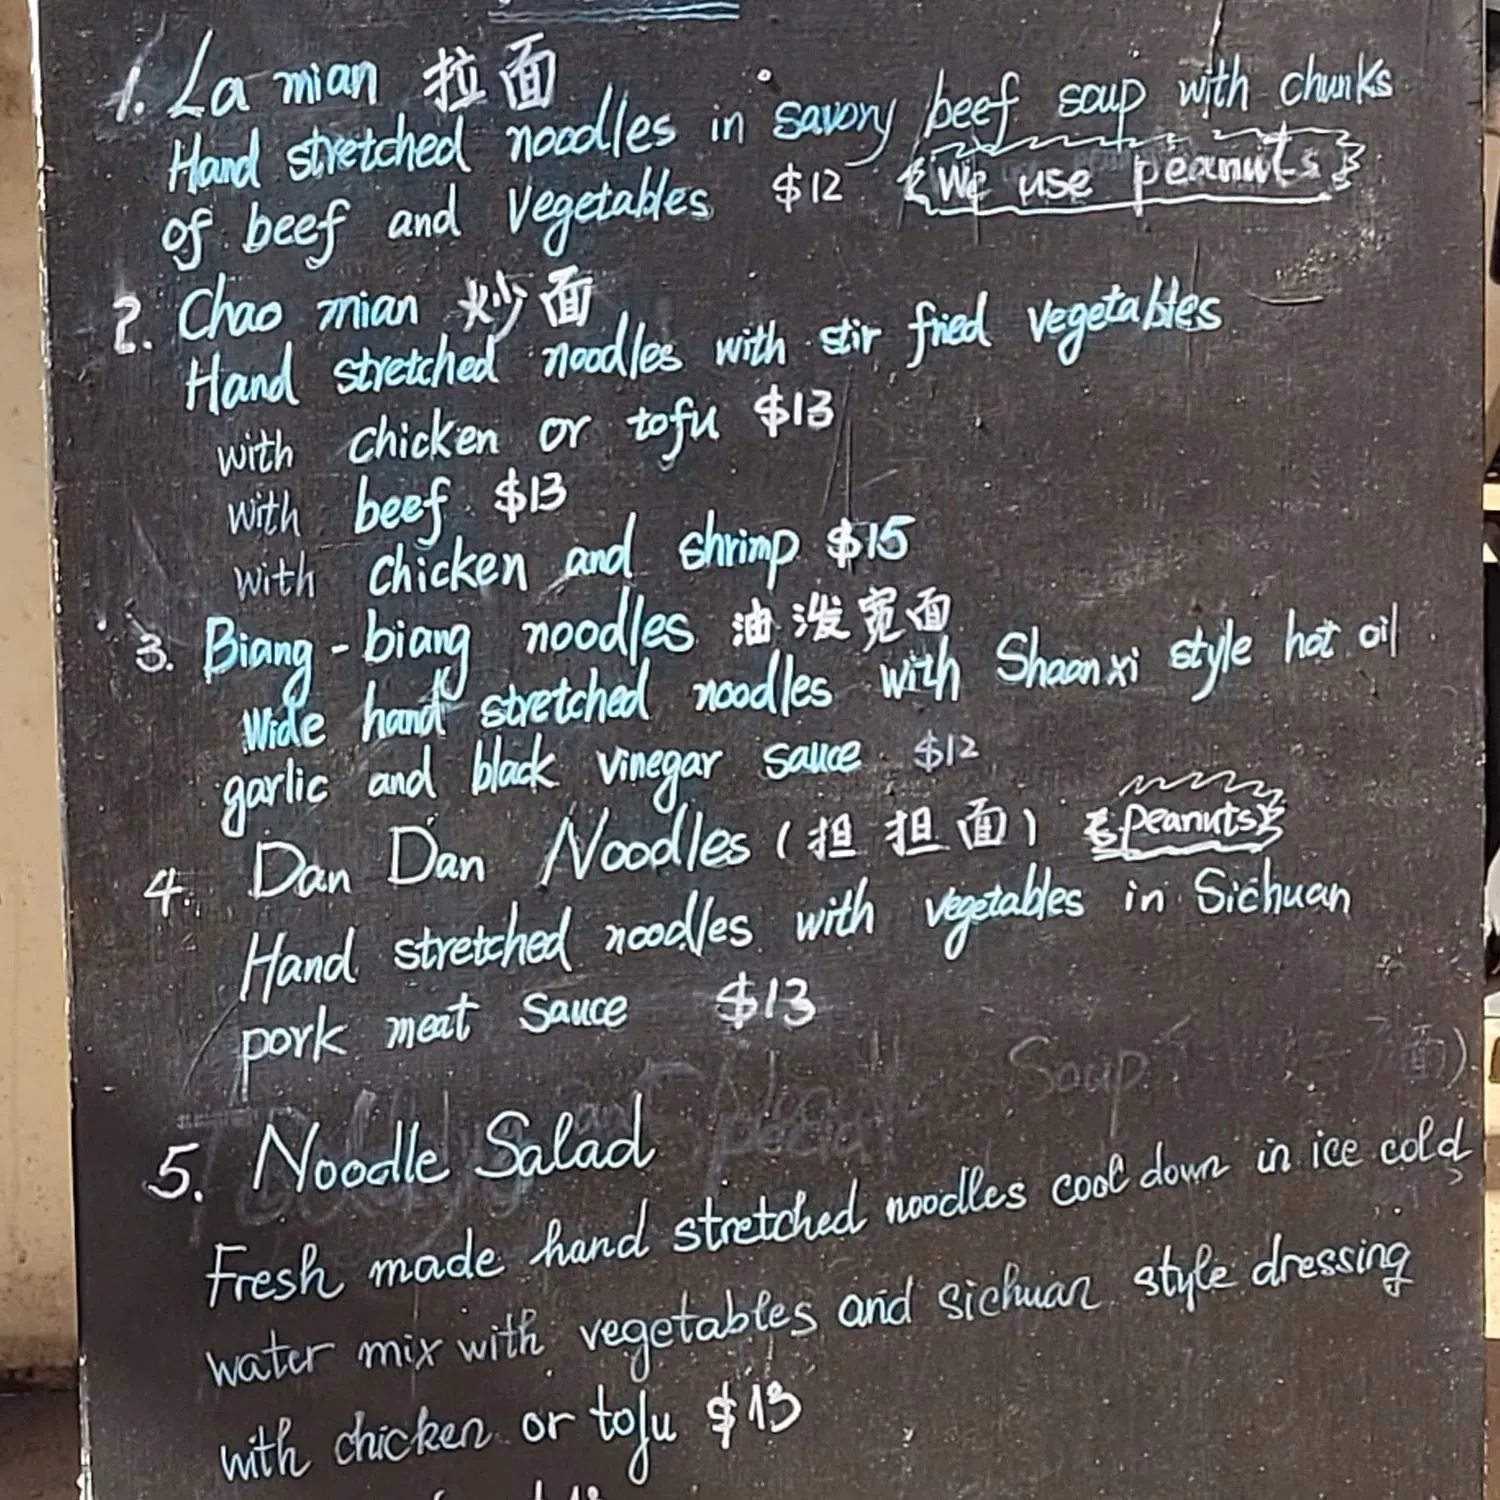 1. La mian 拉面
Hand stretched noodles in savory beef soup with chunks
of beef and Vegetables $12 We use peanuts
2. Chao mian 炒面
Hand stretched noodles with stir fried vegetables
with chicken or tofu $13
with beef $13
with chicken and shrimp $15
3. Biang-biang noodles 油泼宽面
Wide hand stretched noodles with Shaanxi style hot oil
garlic and black vinegar sauce $12
4. Dan Dan Noodles (担担面) peanuts
Hand stretched noodles with vegetables in Sichuan
pork meat sauce $13
Soup 面)
5. Noodle Salad
Fresh made hand stretched noodles cool down in ice cold,
water mix with vegetables and sichuan style dressing
with chicken or tofu $13